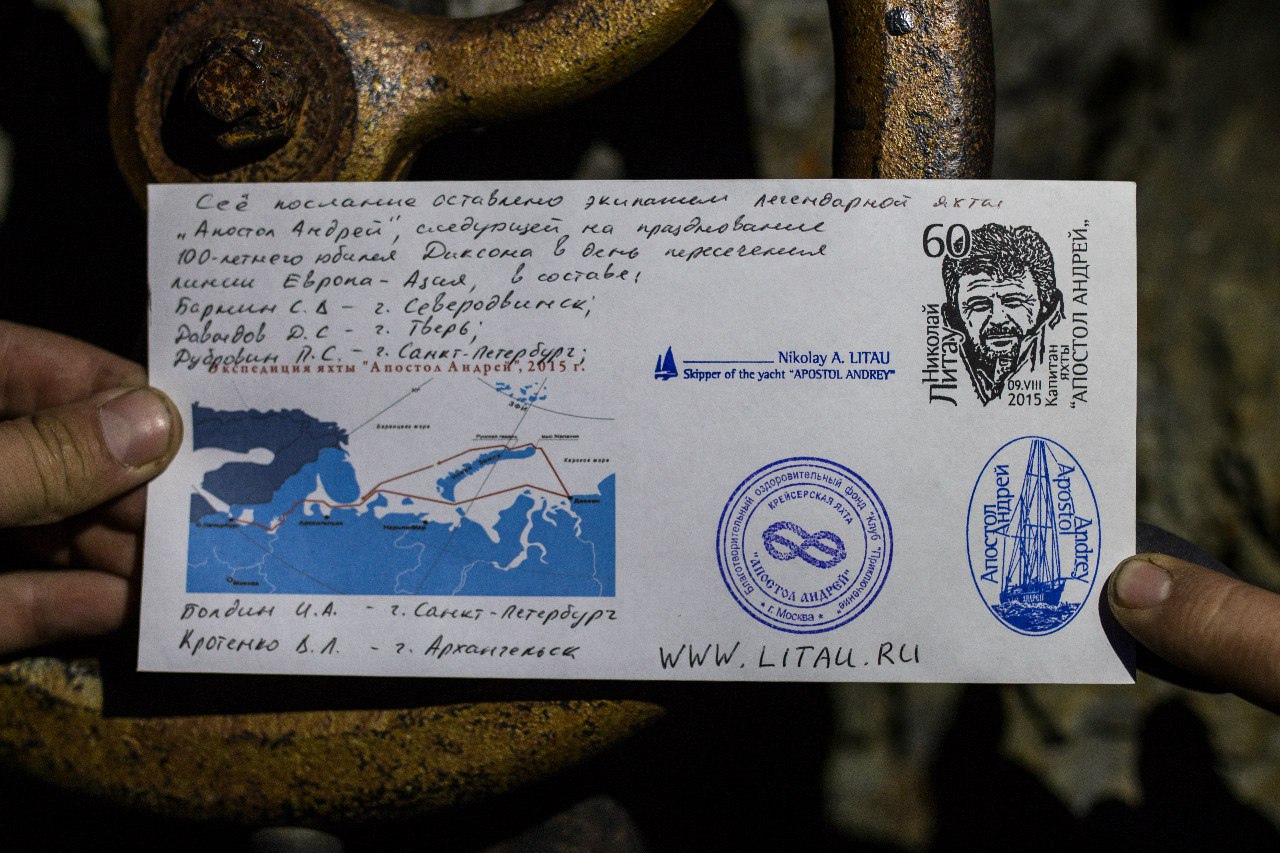 Сеё послание оставлено экипажем легендарной яхты
„Апостол Андрей", следующей на празднование
100-летнего юбилея Диксона в день пересечения
линии Европа-Азия, в составе:
Бармин С.В - г. Северодвинск;
Давыдов Д.С - г. Тверь;
Дубровин П.С. - г. Санкт-Петербург;
Экспедиция яхты "Апостол Андрей", 2015 г.
ЗФИ
Баренцево море
Русская гавань
мыс Желания
Карское море
Диксон
С.Петербург
Архангельск
Нарьян-Мар
Москва
Болдин И.А. - г. Санкт-Петербург
Кротенко В.Л. - г. Архангельск
Nikolay A. LITAU
Skipper of the yacht "APOSTOL ANDREY"
60
Николай
Литау
09.VIII
2015
Капитан
яхты
"АПОСТОЛ АНДРЕЙ„
Благотворительный оздоровительный фонд "Клуб "Приключение"
КРЕЙСЕРСКАЯ ЯХТА
"АПОСТОЛ АНДРЕЙ"
* г. Москва *
Апостол
Андрей
Apostol
Andrey
WWW.LITAU.RU